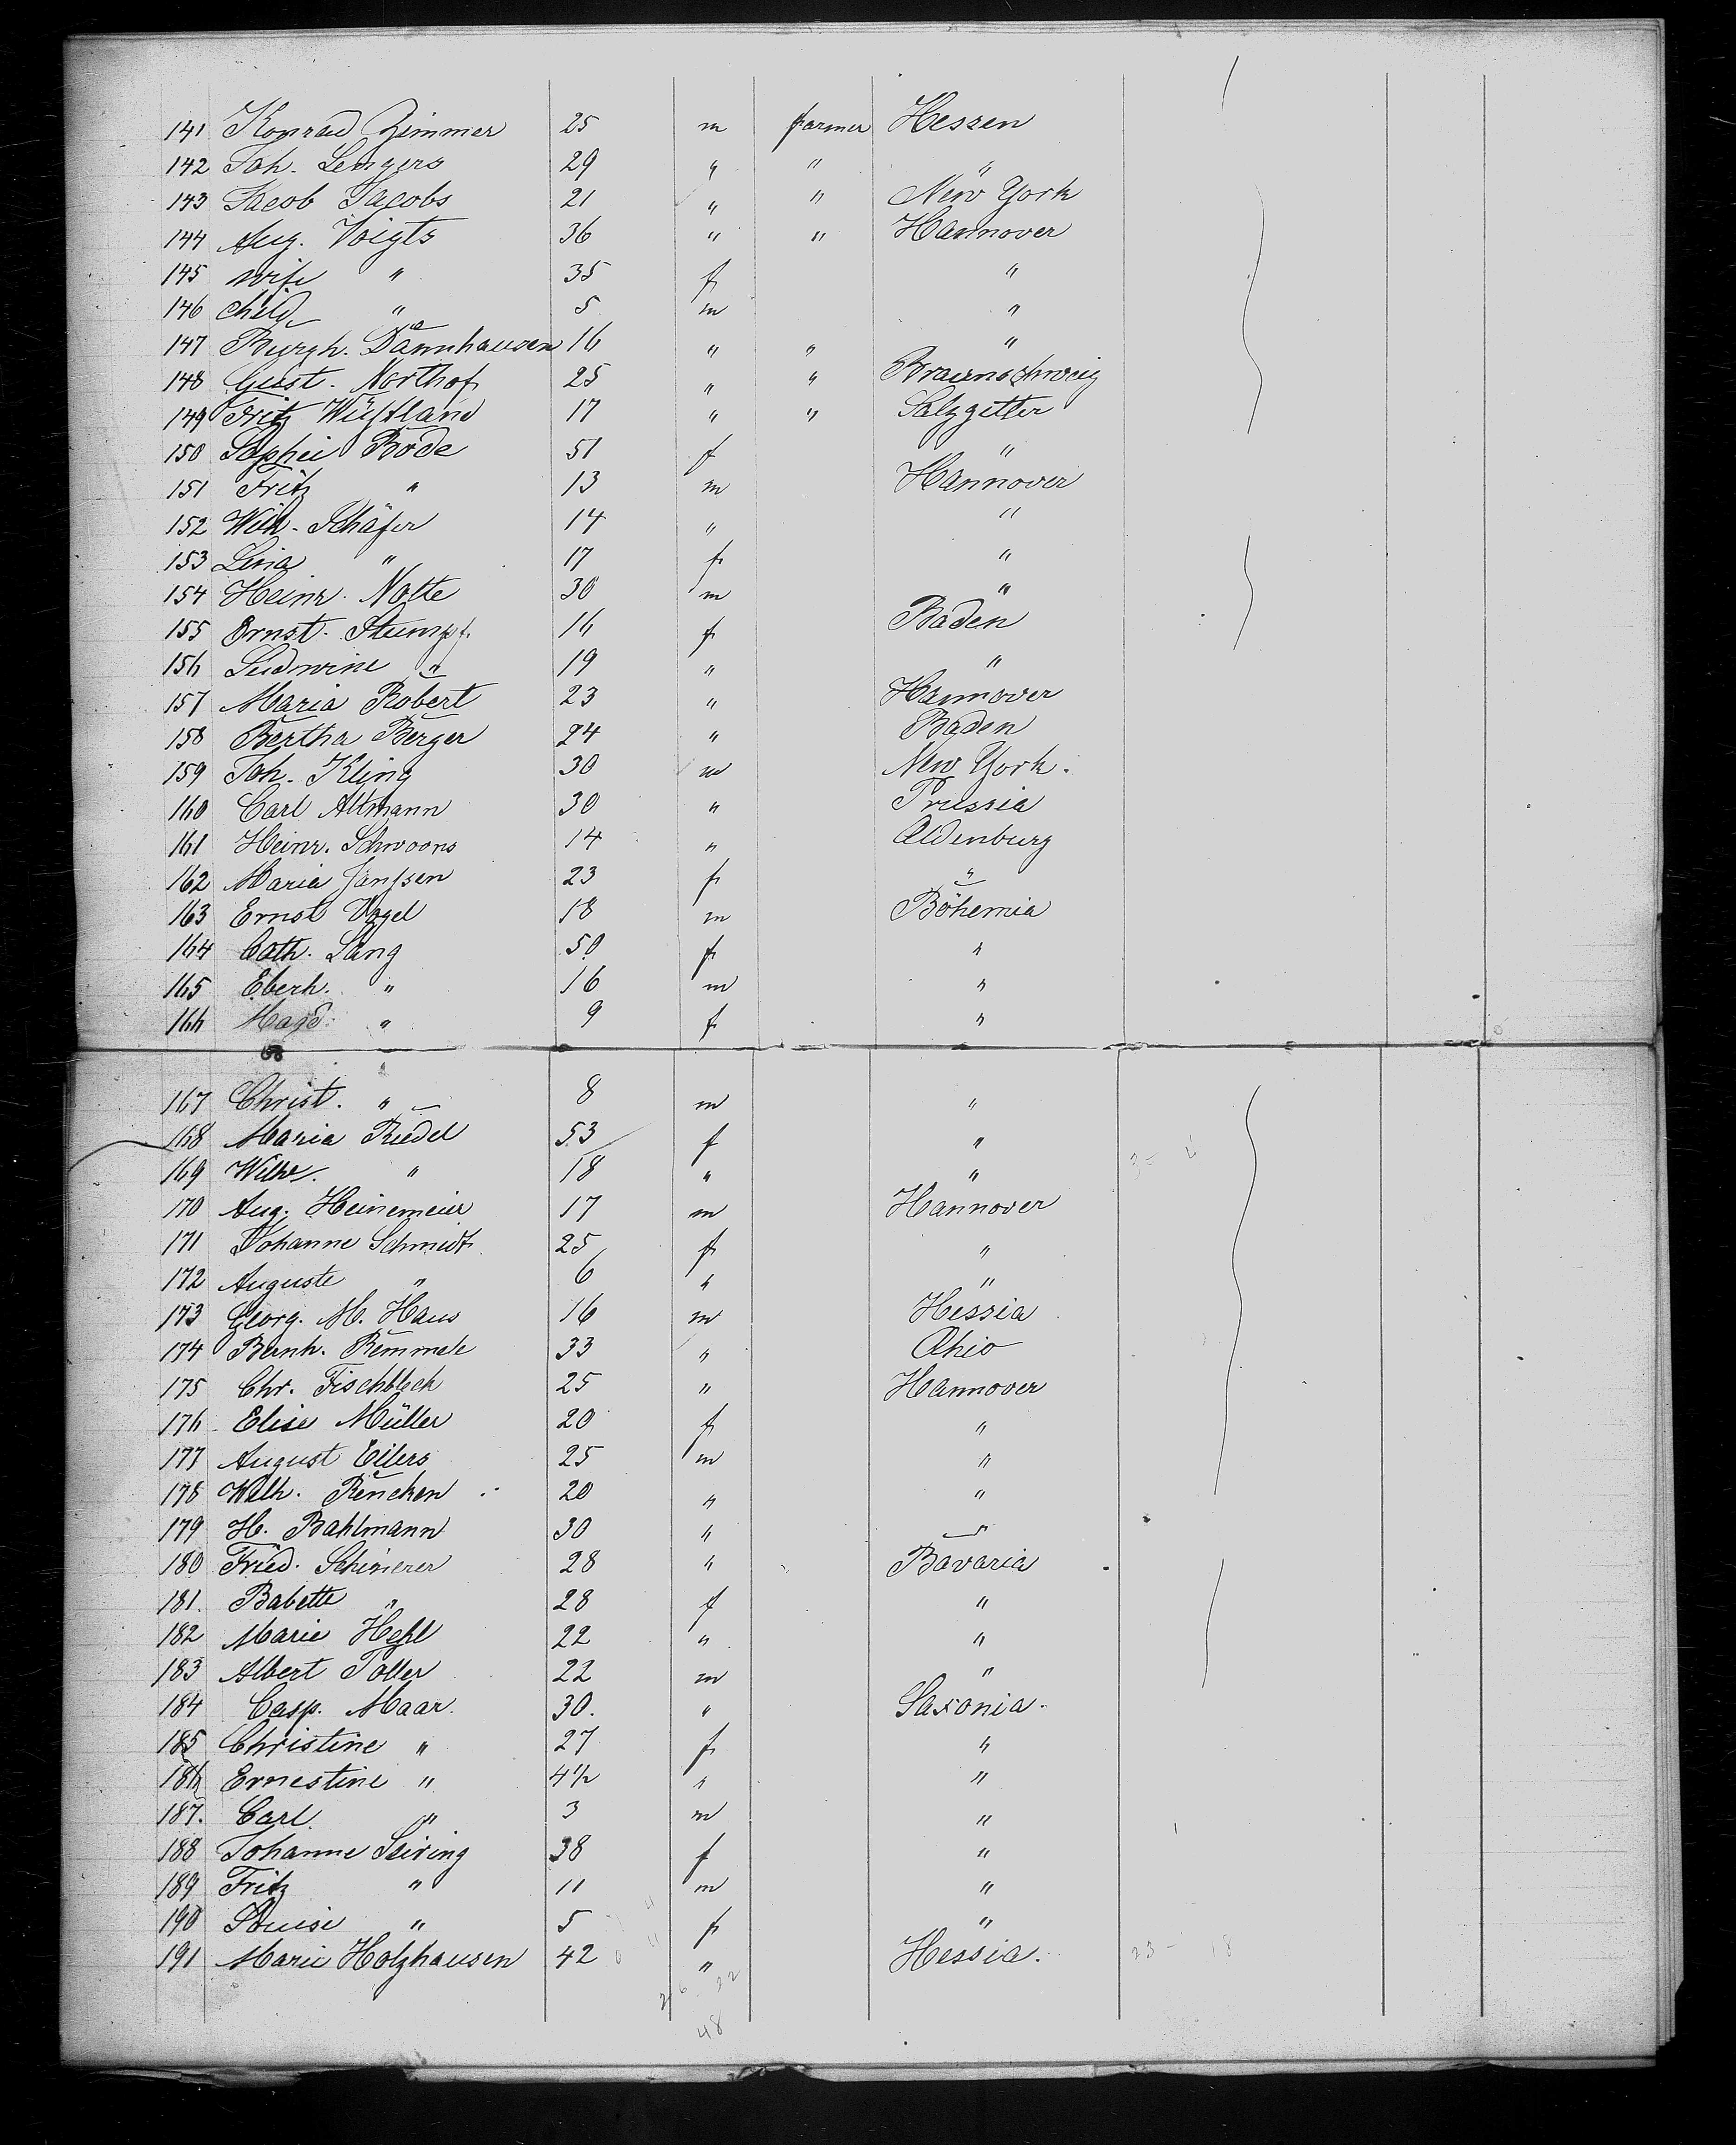 141 Konrad Zimmer 25 m farmer Hessen
142 Joh. Lengers 29 " " "
143 Jacob Jacobs 21 " " New York
144 Aug. Voigts 36 " " Hannover
145 wife " 35 f "
146 child " 5 m "
147 Burgh. Dannhausen 16 " " "
148 Gust. Northof 25 " " Braunschweig
149 Fritz Wüstland 17 " " Salzgitter
150 Sophei Bode 51 f "
151 Fritz " 13 m Hannover
152 Wilh. Schäfer 14 " "
153 Lina " 17 f "
154 Heinr. Nolte 30 m "
155 Ernst. Stumpf 16 f Baden
156 Ludwine " 19 " "
157 Maria Robert 23 " Hannover
158 Bertha Berger 24 " Baden
159 Joh. Kling 30 m New York.
160 Carl Altmann 30 " Prussia
161 Heinr. Schwoons 14 " Oldenburg
162 Maria Janssen 23 f "
163 Ernst Vogel 18 m Böhemia
164 Cath. Lang 50 f "
165 Eberh. " 16 m "
166 Magd. " 9 f "
167 Christ. " 8 m "
168 Maria Riedel 53 f "
169 Wilh. " 18 " "
170 Aug. Heinemeier 17 m Hannover
171 Johanne Schmidt 25 f "
172 Auguste " 6 " "
173 Georg. M. Haus 16 m Hessia
174 Bernh. Remmele 33 " Ohio
175 Chr. Fischbeck 25 " Hannover
176 Elise Müller 20 f "
177 August Eilers 25 m "
178 Wilh. Rencken 20 " "
179 H. Bahlmann 30 " "
180 Fried. Schinerer 28 " Bavaria
181. Babette " 28 f "
182 Marie Hehl 22 " "
183 Albert Toller 22 m "
184 Casp. Maar. 30. " Saxonia.
185 Christine " 27 f "
186 Ernestine " 4 1/2 " "
187. Carl. " 3 m "
188 Johanne Seiring 38 f "
189 Fritz " 11 m "
190 Louise " 5 f "
191 Marie Holzhausen 42 " Hessia.
48